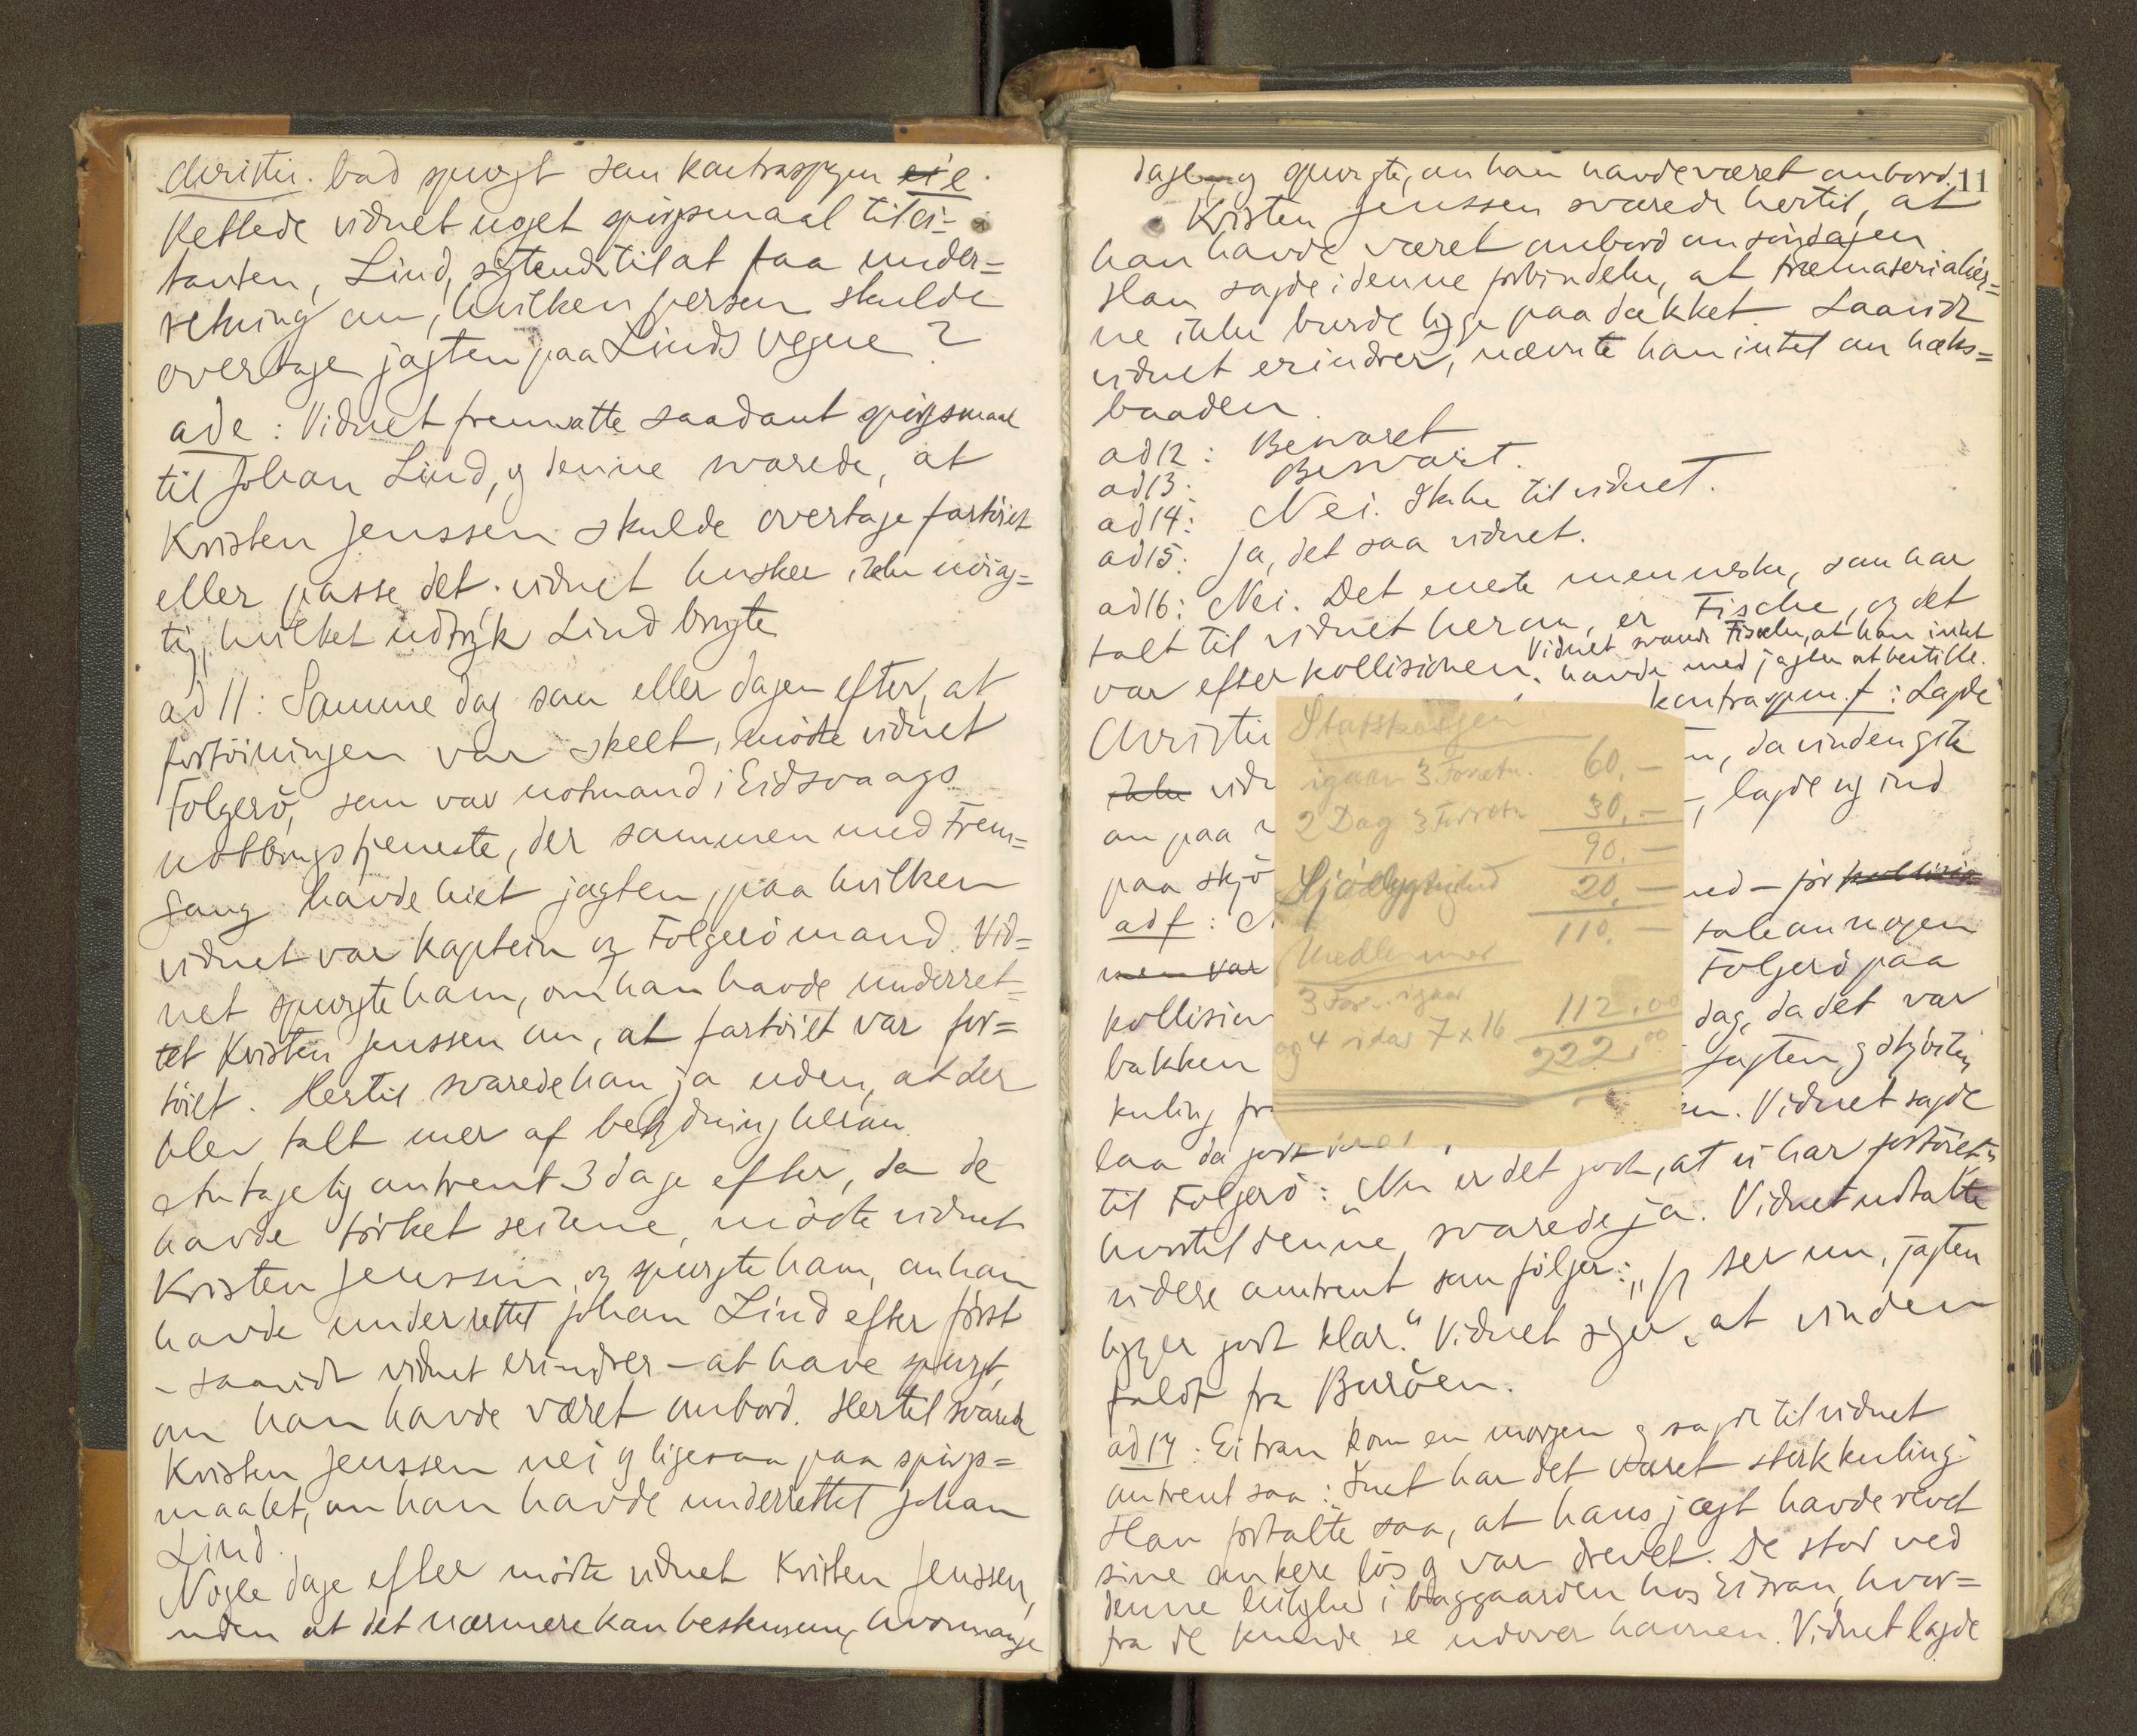 Christie bad spurgt som kontraspgm e
Rettede vidnet noget spörgsmaal til ci=
tanten, Lind, sigtende til at faa under=
retning om, hvilken person skulde
overtage jagten paa Linds vegne?
ad e: Vidnet fremsatte saadant spörgsmaal
til Johan Lind, og denne svarede, at
Kristen Jenssen skulde overtage fartöiet
eller passe det. vidnet husker ikke nöiag=
tig, hvilket udtryk Lind brugte
ad 11: Samme dag som eller dagen efter, at
fortöiningen var skeet, mödte vidnet
Folgerö, som var notmand i Eidsvaags
notbrugs tjeneste, der sammen med Frem=
gang havde leiet jagten, paa hvilken
vidnet var kaptein og Folgerö mand. Vid=
net spurgte ham, om han havde underret=
tet Kristen Jenssen om, at fartöiet var for=
töiet. Hertil svarede han ja uden, at der
blev talt mer af betydning herom
Antagelig omtrent 3 dage efter, da de
havde törket seilene, mödte vidnet
Kristen Jenssen og spurgte ham, om han
havde underrettet Johan Lind efter först
– saavidt vidnet erindrer – at have spurgt,
om han havde været ombord. Hertil svarede
Kristen Jenssen nei og ligesaa paa spörgs=
maalet, om han havde underrettet Johan
Lind.
Nogle dage efter mödte vidnet Kristen Jenssen,
uden at det nærmere kan bestemmes, hvormange
dage, og spurgte, om han havde været ombord.
11
Kristen Jenssen svarede hertil, at
han havde været ombord om söndagen.
Han sagde i denne forbindelse, at træmaterialier=
ne ikke burde ligge paa dækket. Saavidt
vidnet erindrer, nævnte han intet om hæks=
baaden.
ad 12: Besvaret
ad 13: Besvaret.
ad 14: Nei. Ikke til vidnet.
ad 15: Ja, det saa vidnet.
ad 16: Nei. Det eneste menneske, som har
talt til vidnet herom, er Fische, og det
var efter kollisionen. Vidnet svarede Fische, at han intet
havde med jagten at bestille.
Christie kontraspgm. f: Lagde
ikke vidn n, da vinden gik
om paa , lagde og ind
paa skjö ned – för kollisio
ad f: N tale om nogen
men var Folgerö paa
kollision dag, da det var
bakken Jagten, og skjöiten
kuling fra en. Vidnet sagde
laa da godt
Statskassen
igaar 3 Forretn. 60.–
2 Dag 3 Forretn 30.–
90.–
20.–
110.–
Medlemmer
3 Forr. igaar
og 4 idag 7 x 16 112.00
222.00
til Folgerö: "Nu er det godt, at vi har fortöiet",
hvortil denne svarede ja. Vidnet udtalte
videre omtrent som fölger: "Jeg ser nu, jagten
ligger godt klar." Vidnet siger, at vinden
faldt fra Buröen.
ad 17: Eitran kom en morgen og sagde til vidnet
omtrent saa: Inat har det været sterk kuling.
Han fortalte saa, at hans jagt havde revet
sine ankere lös og var drevet. De stod ved
denne leilighed i baggaarden hos Eitran, hvor=
fra de kunde se udover havnen. Vidnet lagde